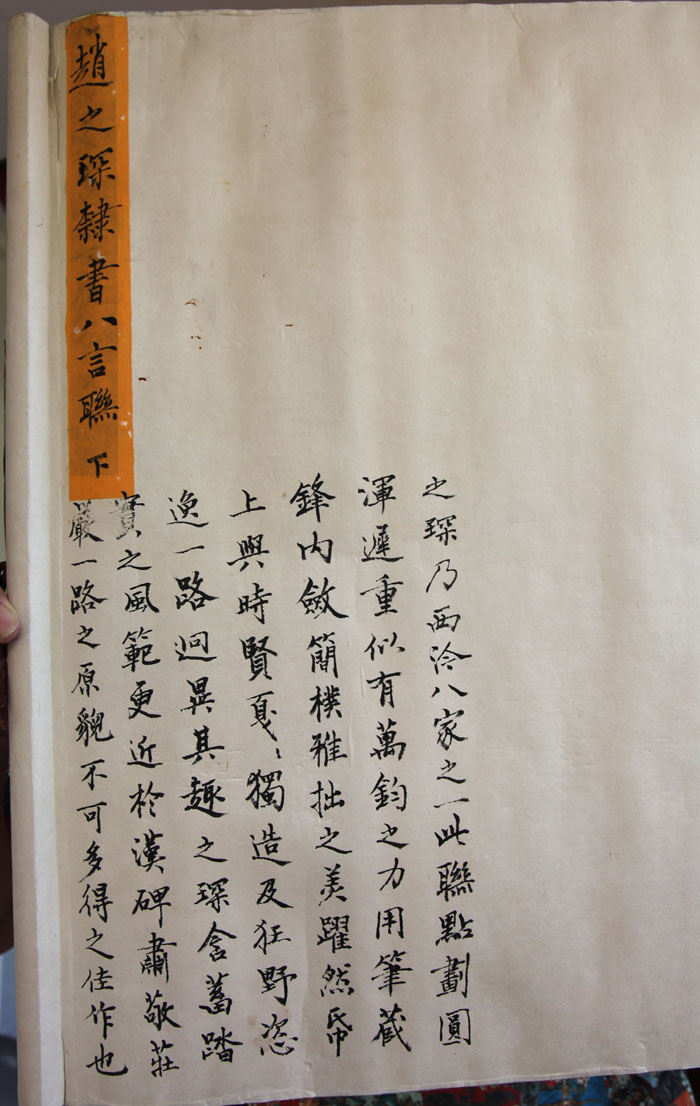 趙之琛隸書八言聯 下
之琛乃西泠八家之一此聯點劃圓
渾遲重似有萬鈞之力用筆藏
鋒內斂簡樸雅拙之美躍然帋
上與時賢戛〻獨造及狂野恣
逸一路迥異其趣之琛含蓄踏
實之風範更近於漢碑肅敬莊
嚴一路之原貌不可多得之佳作也